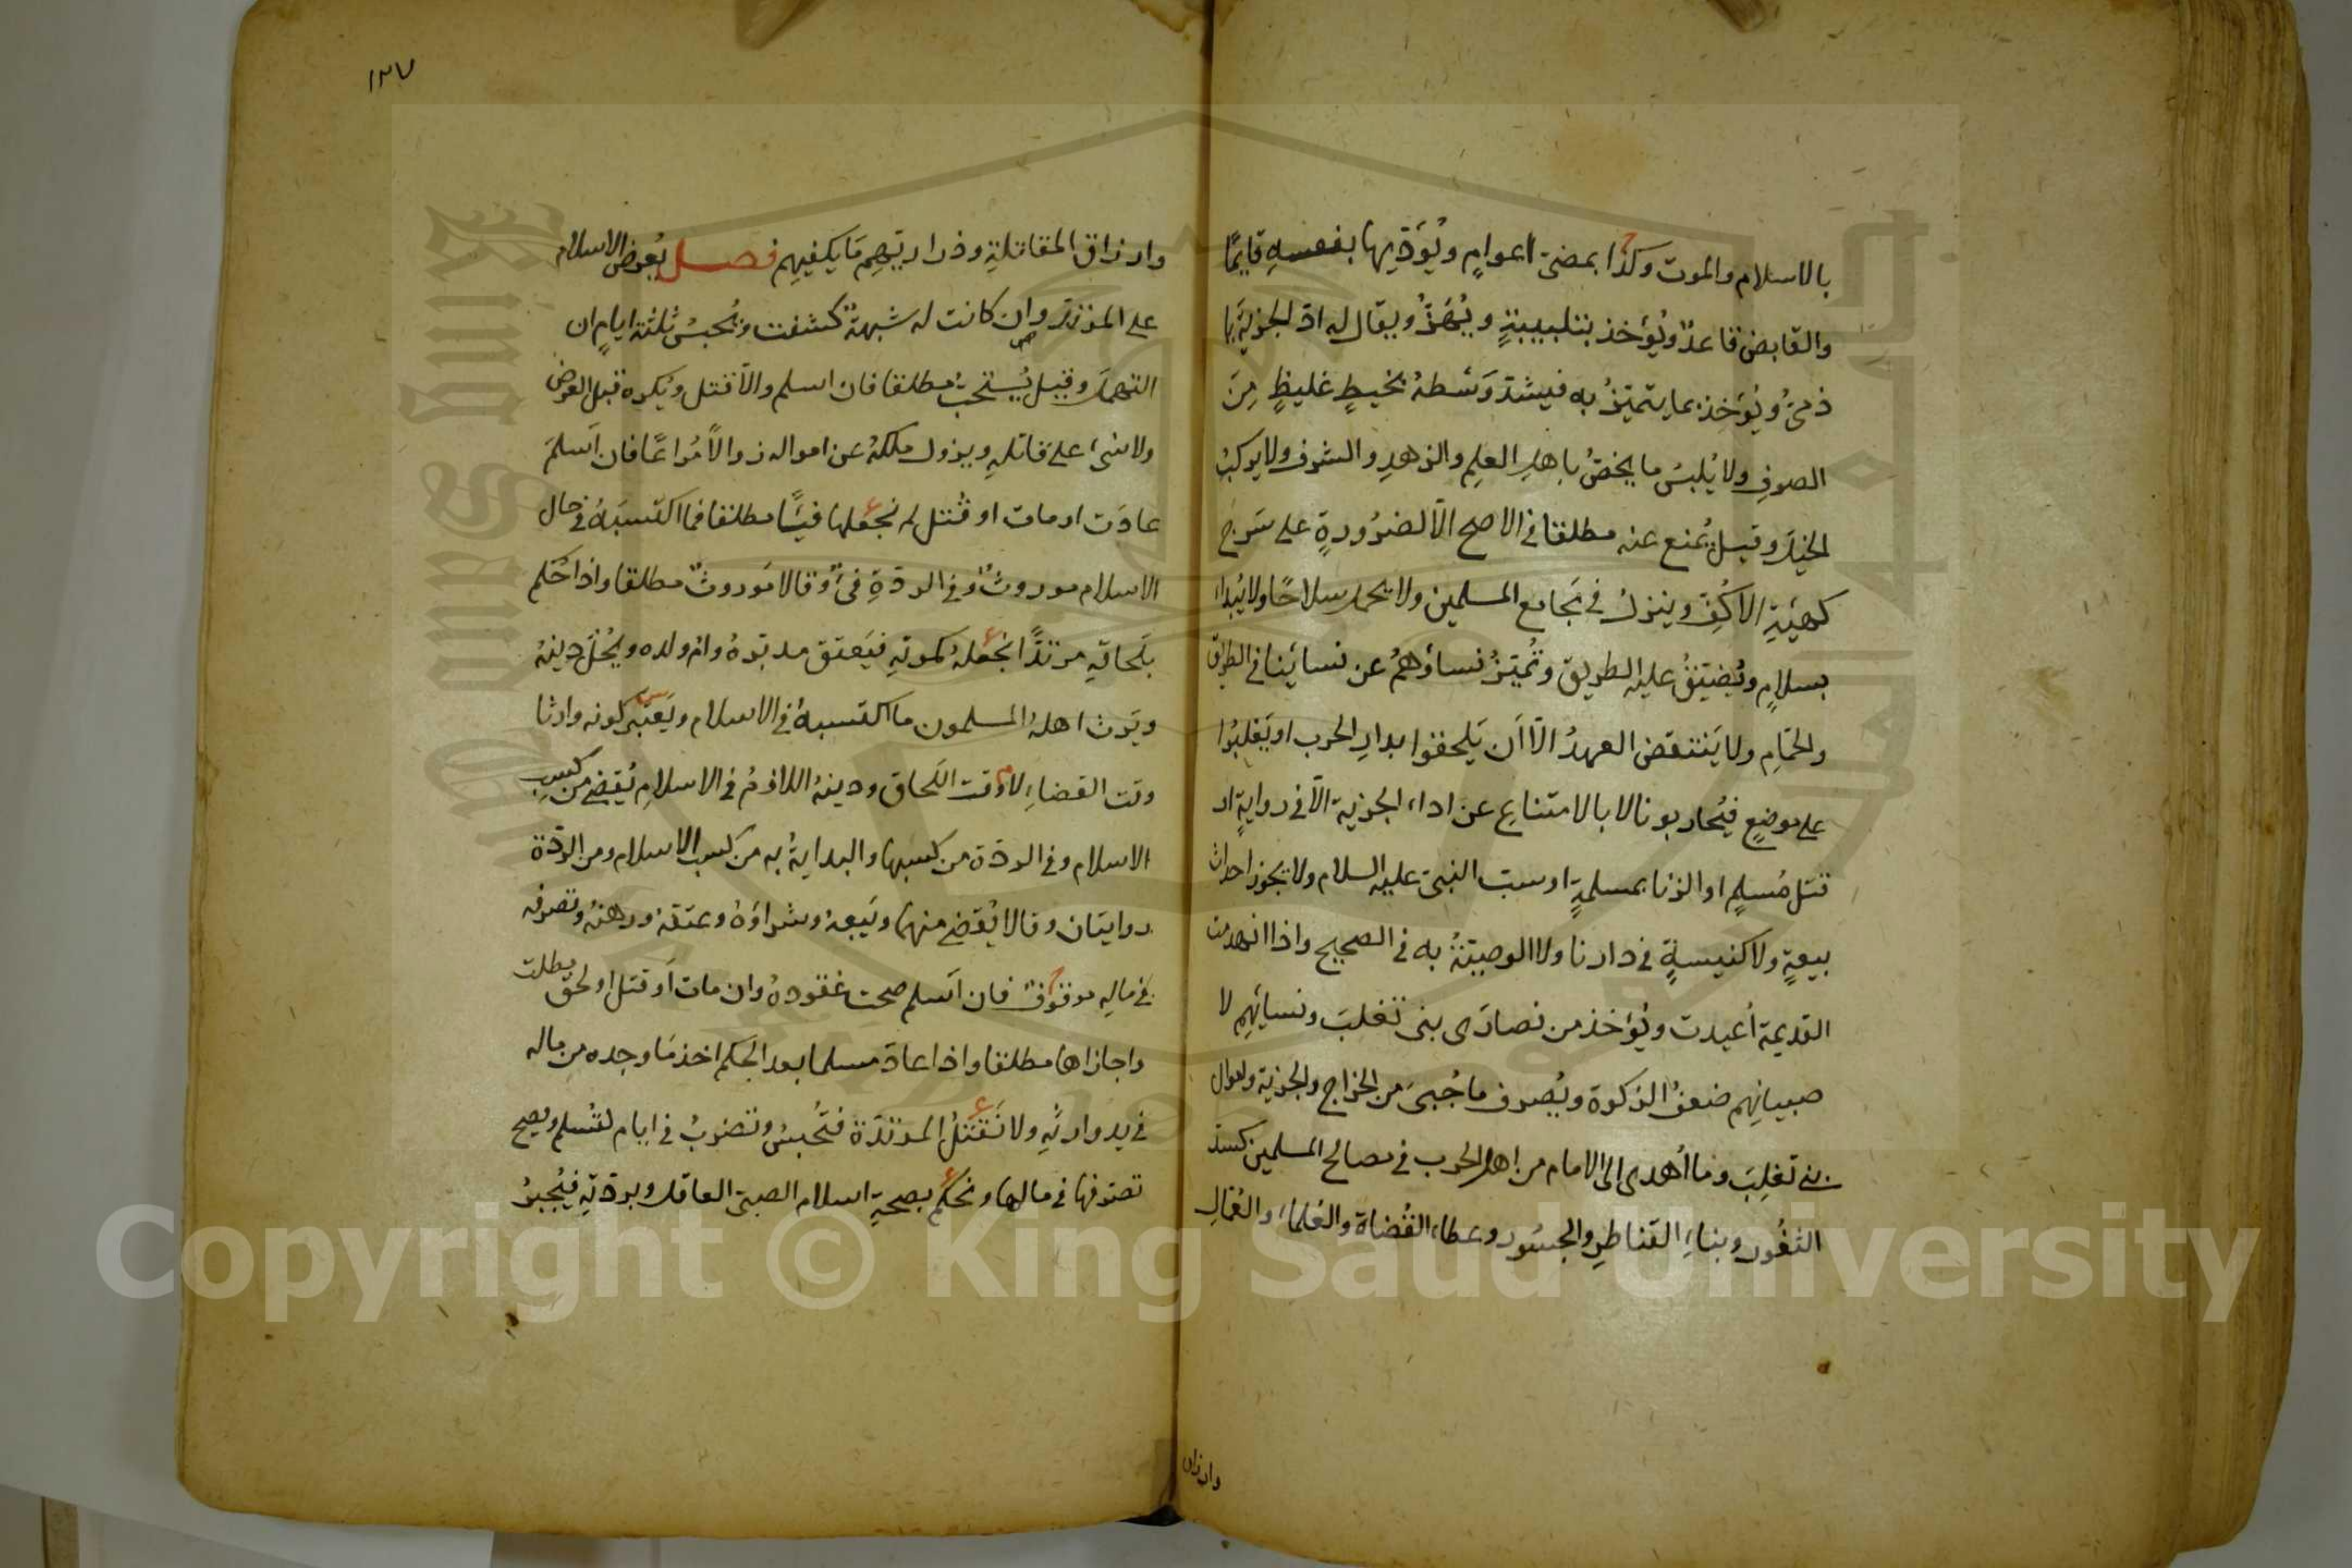 بالاسلام والموت وكذا بمضىّ اعوامٍ ويُؤدّيها بنفسهِ قايمًا
والقابض قاعدٌ ويُؤخذ بتلبيبةٍ ويُهَزُّ ويقال له ادّ الجزيةَ يا
ذمىُّ ويُؤخذ بما يتميّزُ به فيشدّ وَسْطهُ بخيطٍ غليظٍ مِنَ
الصوفِ ولا يُلبسُ ما يخصُّ باهلِ العلِم والزهدِ والشرف ولا يركبُ
الخيلَ وقيل يُمنع عنه مطلقا فى الاصح الّا لضرُورةٍ على سَرجٍ
كهيئةِ الاكُفّ وينزلُ فى مجامع المسلمين ولا يحمل سلاحًا ولا يُبداء
بسلامٍ ويُضيّقُ عليه الطريق وتُميّزُ نساؤهمُ عن نسائِنا فى الطريق
والحمّامِ ولا يَنتقض العهدُ الّا اَن يَلحقوا بدارِ الحرب او يَغلبُوا
على موضعٍ فيُحاربونا لا بالامتناعِ عن اداء الجزية الّا فى روايةٍ او
قتل مُسلمٍ او الزنا بمسلمةٍ او سبّ النبىّ عليه السلام ولا يجوز احداث
بيعةٍ ولا كنيسةٍ فى دارنا ولا الوصيّةُ به فى الصحيح واذا انهدمت
القديمة اُعيدت ويُؤخذ من نصارَى بنى تغلبَ ونسائهِم لا
صبيانِهم ضعفُ الزكوة ويُصرف ما جُبىَ من الخراج والجزية واموال
بنى تغلِبَ وما اُهدى الى الامام من اهل الحرب فى مصالح المسلمين كسدّ
الثغُور وبناءِ القناطرِ والجسُور وعطاء القُضاة والعُلماء والعُمّالِ
وارزاق
١٣٧
وارزاق المقاتلةِ وذراريّهِم مَا يكفيهِم فصل يُعرض الاسلام
على المرتدّ وان كانت له شبهةٌ كشفت ويُحبسُ ثلثة ايامٍ ان
استمهلَ وقيل يُستحبّ مطلقا فان اسلم والّا قتل ويُكره قبل العرض
ولا شىء على قاتلهِ ويزول ملكهُ عن امواله زوالاً مُراعًا فان اَسلمَ
عادَت او مات او قُتل لم نجعلها فيئًا مطلقا فما اكتسبَهُ فى حال
الاسلام موروثٌ وفى الردّةِ فىءٌ وقالا مَوروثٌ مطلقا واذا حُكم
بلَحاقهِ مرتدًّا نجعلهُ كموتهِ فيَعتق مدبّروهُ وامُّ ولده ويُحلّ دينهُ
ويَرث اهلهُ المسلمون ما اكتسبهُ فى الاسلام ويَعتبر كونه وارثا
وقت القضاءِ لا وقت اللَحاق ودينهُ اللازمُ فى الاسلامِ يُقضى من كسبِ
الاسلام وفى الردّة من كسبها والبدايةُ به من كسب الاسلام ومن الردّة
روايتان وقالا يُقضى منهما وبَيعهُ وشراؤهُ وعتقهُ ورهنهُ وتصرفه
فى مالِه موقوفٌ فان اَسلم صحت عقودهُ وان مات اَو قتل او لحق بطلت
واجازاها مطلقا واذا عادَ مسلما بعد الحكم اخذ مَا وجده من ماله
فى يد وارثهِ ولا نَقتلُ المرتدّة فتُحبسُ وتضربُ فى ايام لتُسلم ويصح
تصرّفها فى مالها ونحكم بصحةِ اسلام الصبىّ العاقل وبردّتهِ فيُجبرُ